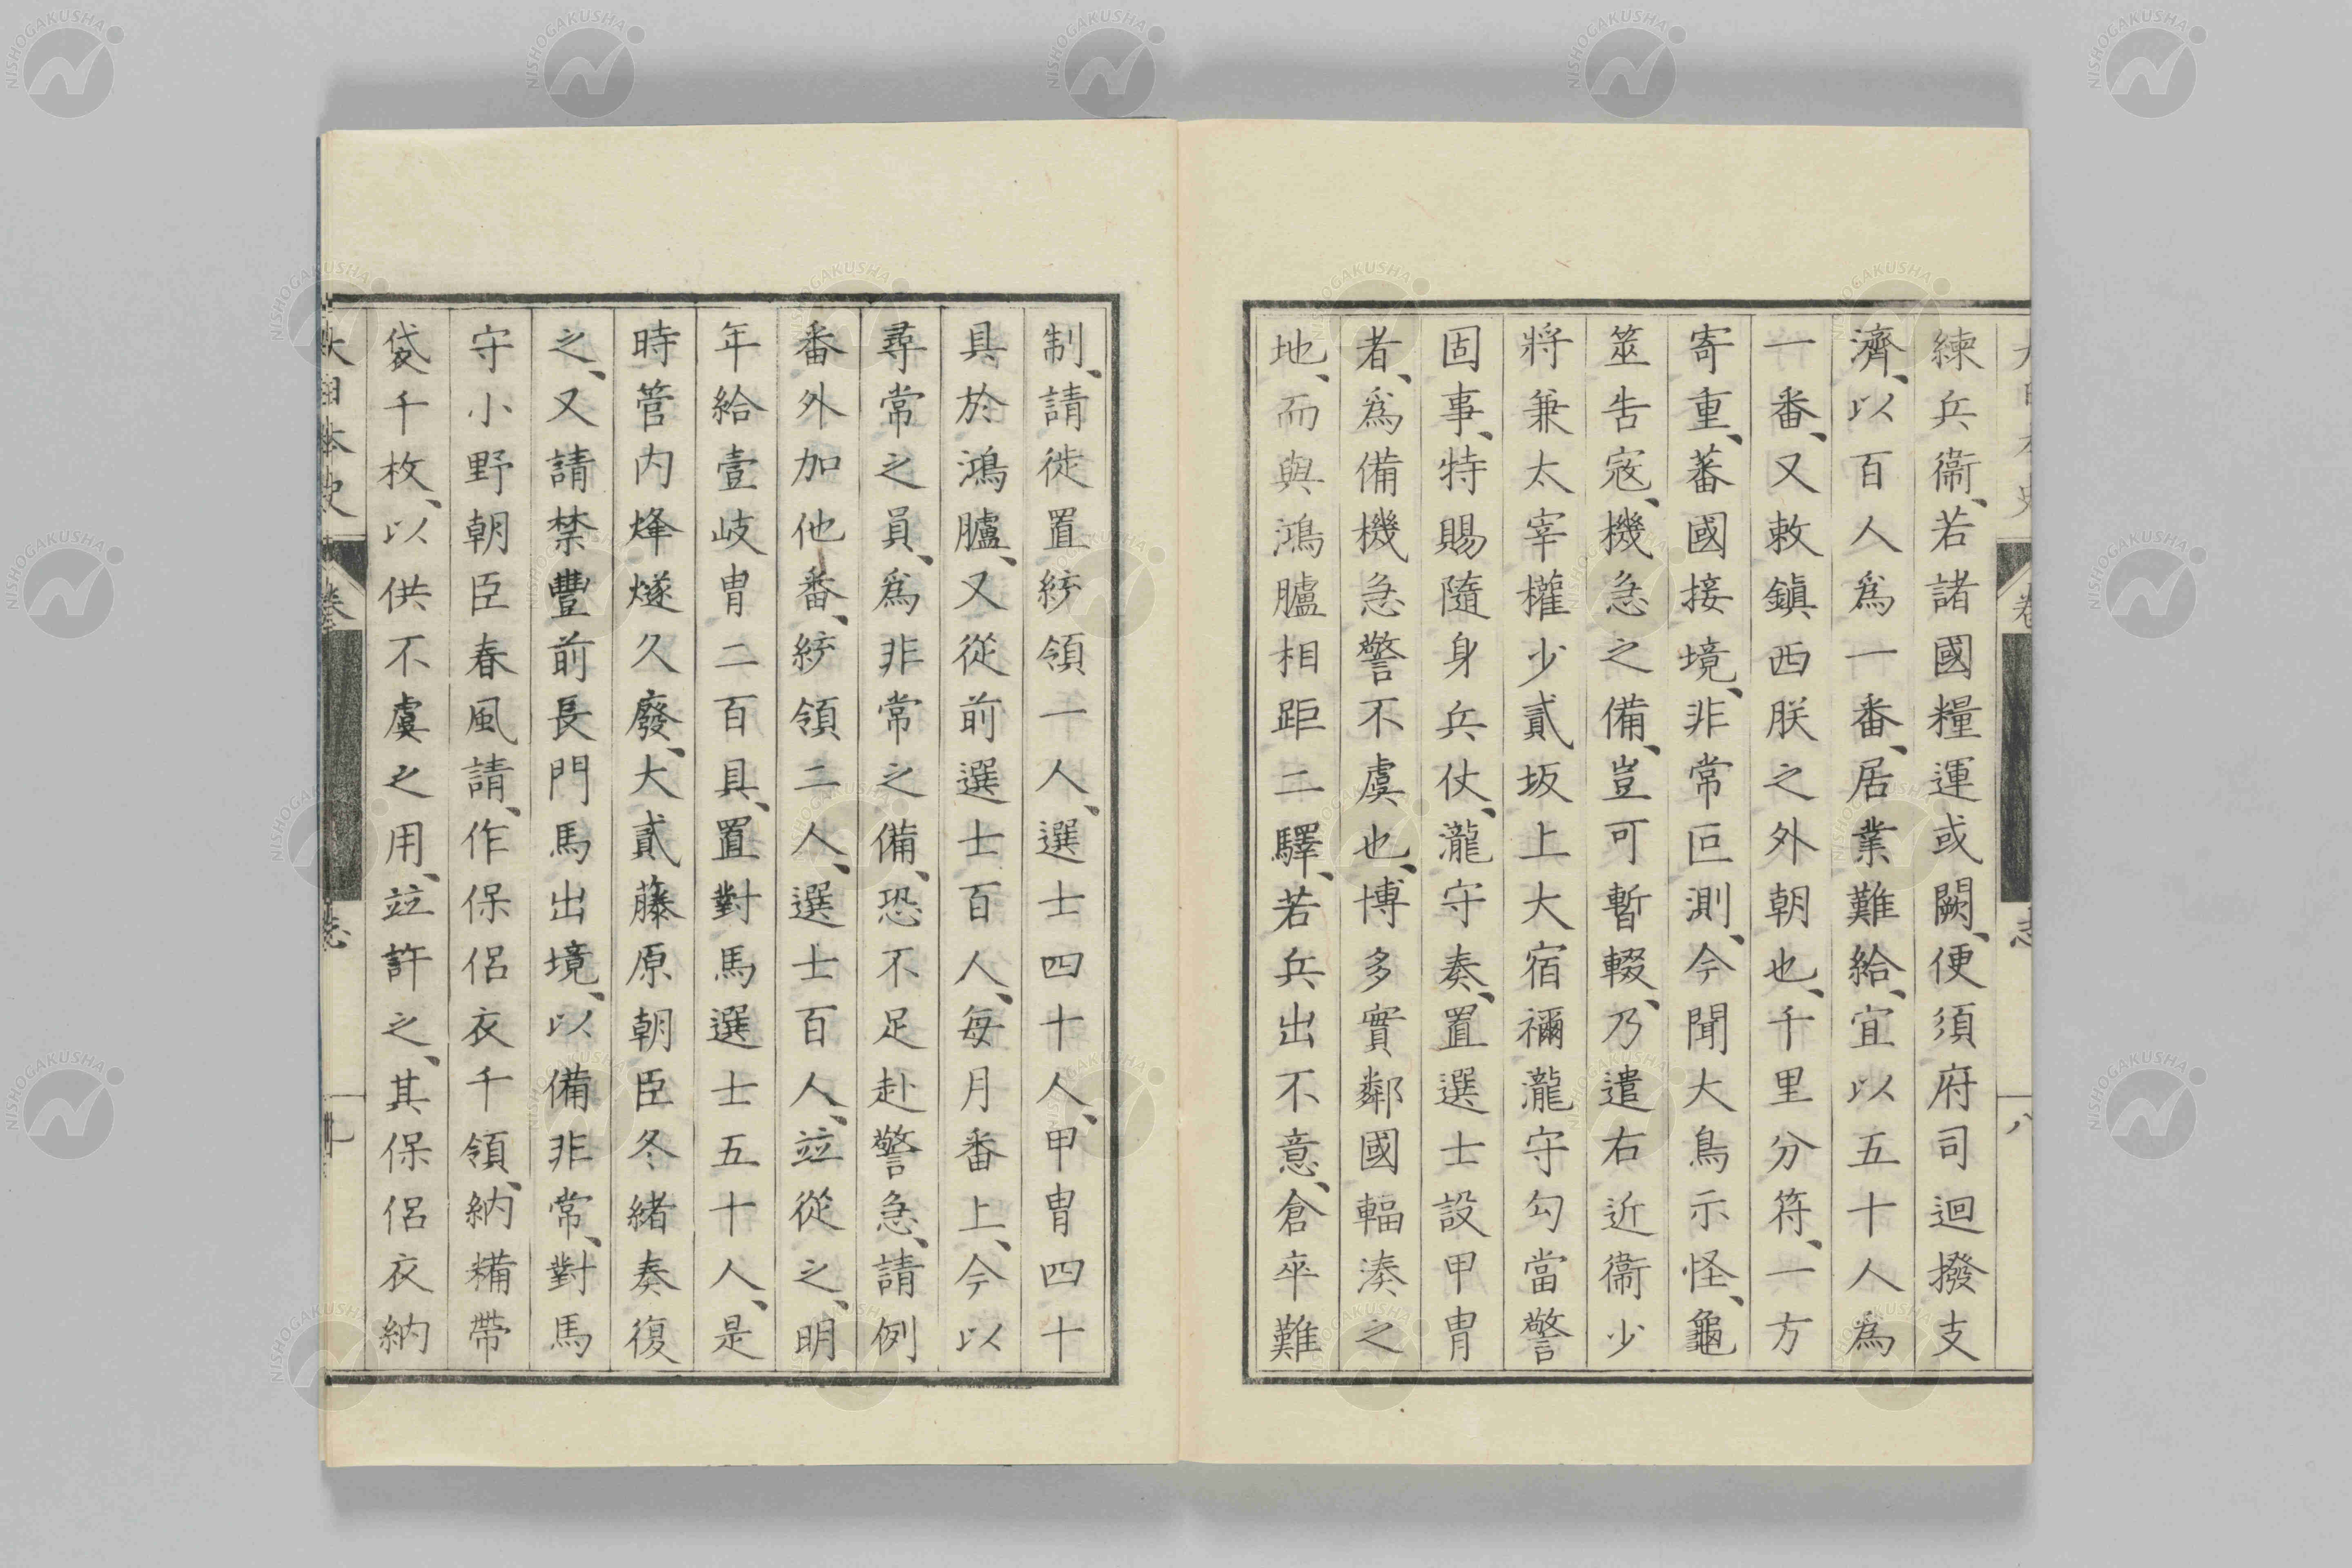 練兵衞、若諸國糧運或闕、便須府司迴撥支
濟、以百人爲一番、居業難給、宜以五十人爲
一番、又敕鎭西朕之外朝也、千里分符、一方
寄重、蕃國接境、非常叵測、今聞大鳥示怪、龜
筮告寇、機急之備、豈可暫輟、乃遣右近衞少
將兼太宰權少貳坂上大宿禰瀧守勾當警
固事、特賜隨身兵仗、瀧守奏、置選士設甲冑
者、爲備機急警不虞也、博多實鄰國輻湊之
地、而與鴻臚相距二驛、若兵出不意、倉卒難
制、請徙置統領一人、選士四十人、甲冑四十
具於鴻臚、又從前選士百人、每月番上、今以
尋常之員、爲非常之備、恐不足赴警急、請例
番外加他番、統領二人、選士百人、竝從之、明
年給壹岐冑二百具、置對馬選士五十人、是
時管內烽燧久廢、大貳藤原朝臣冬緖奏復
之、又請禁豐前長門馬出境、以備非常、對馬
守小野朝臣春風請、作保侶衣千領、納糒帶
袋千枚、以供不虞之用、竝許之、其保侶衣納
大日本史
卷
志
八
九
NISHOGAKUSHA